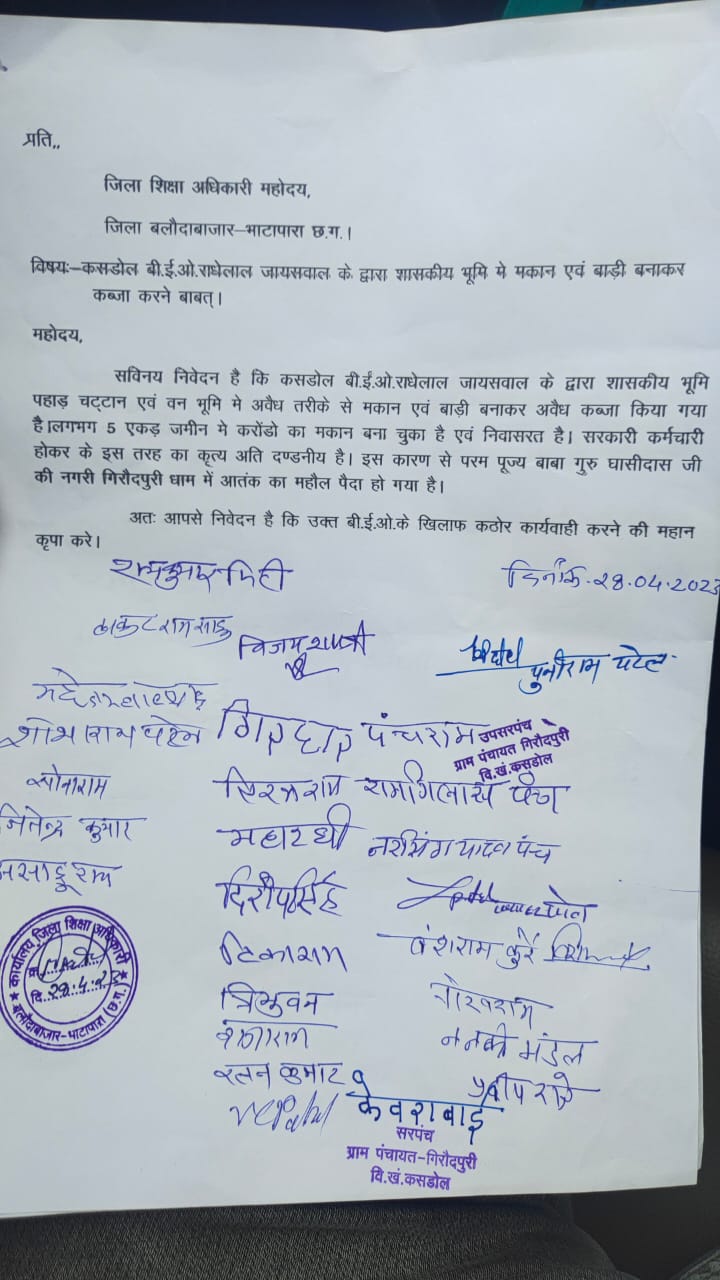 प्रति,,
जिला शिक्षा अधिकारी महोदय,
जिला बलौदाबाजार–भाटापारा छ.ग.।
विषयः–कसडोल बी.ई.ओ.राधेलाल जायसवाल के द्वारा शासकीय भूमि मे मकान एवं बाड़ी बनाकर
कब्जा करने बाबत्।
महोदय,
सविनय निवेदन है कि कसडोल बी.ई.ओ.राधेलाल जायसवाल के द्वारा शासकीय भूमि
पहाड़ चट्टान एवं वन भूमि मे अवैध तरीके से मकान एवं बाड़ी बनाकर अवैध कब्जा किया गया
है।लगभग 5 एकड़ जमीन मे करोंडो का मकान बना चुका है एवं निवासरत है। सरकारी कर्मचारी
होकर के इस तरह का कृत्य अति दण्डनीय है। इस कारण से परम पूज्य बाबा गुरु घासीदास जी
की नगरी गिरौदपुरी धाम में आतंक का महौल पैदा हो गया है।
अतः आपसे निवेदन है कि उक्त बी.ई.ओ.के खिलाफ कठोर कार्यवाही करने की महान
कृपा करे।
दिनाँक-28.04.2023
विजय
पुनीराम पटेल
पंचराम
उपसरपंच
ग्राम पंचायत गिरौदपुरी
वि.खं.कसडोल
सोनाराम
पंच
जितेन्द्र कुमार
महारथी
नरसिंग यादव पंच
दिलीपसिंह
टिकाराम
वंशराम कुर्रे
त्रिभुवन
ननकी मंडल
रतन कुमार
कार्यालय जिला शिक्षा अधिकारी
दि. 28.4.23
बलौदाबाजार-भाटापारा (छ.ग.)
केवराबाई
सरपंच
ग्राम पंचायत-गिरौदपुरी
वि.खं.कसडोल